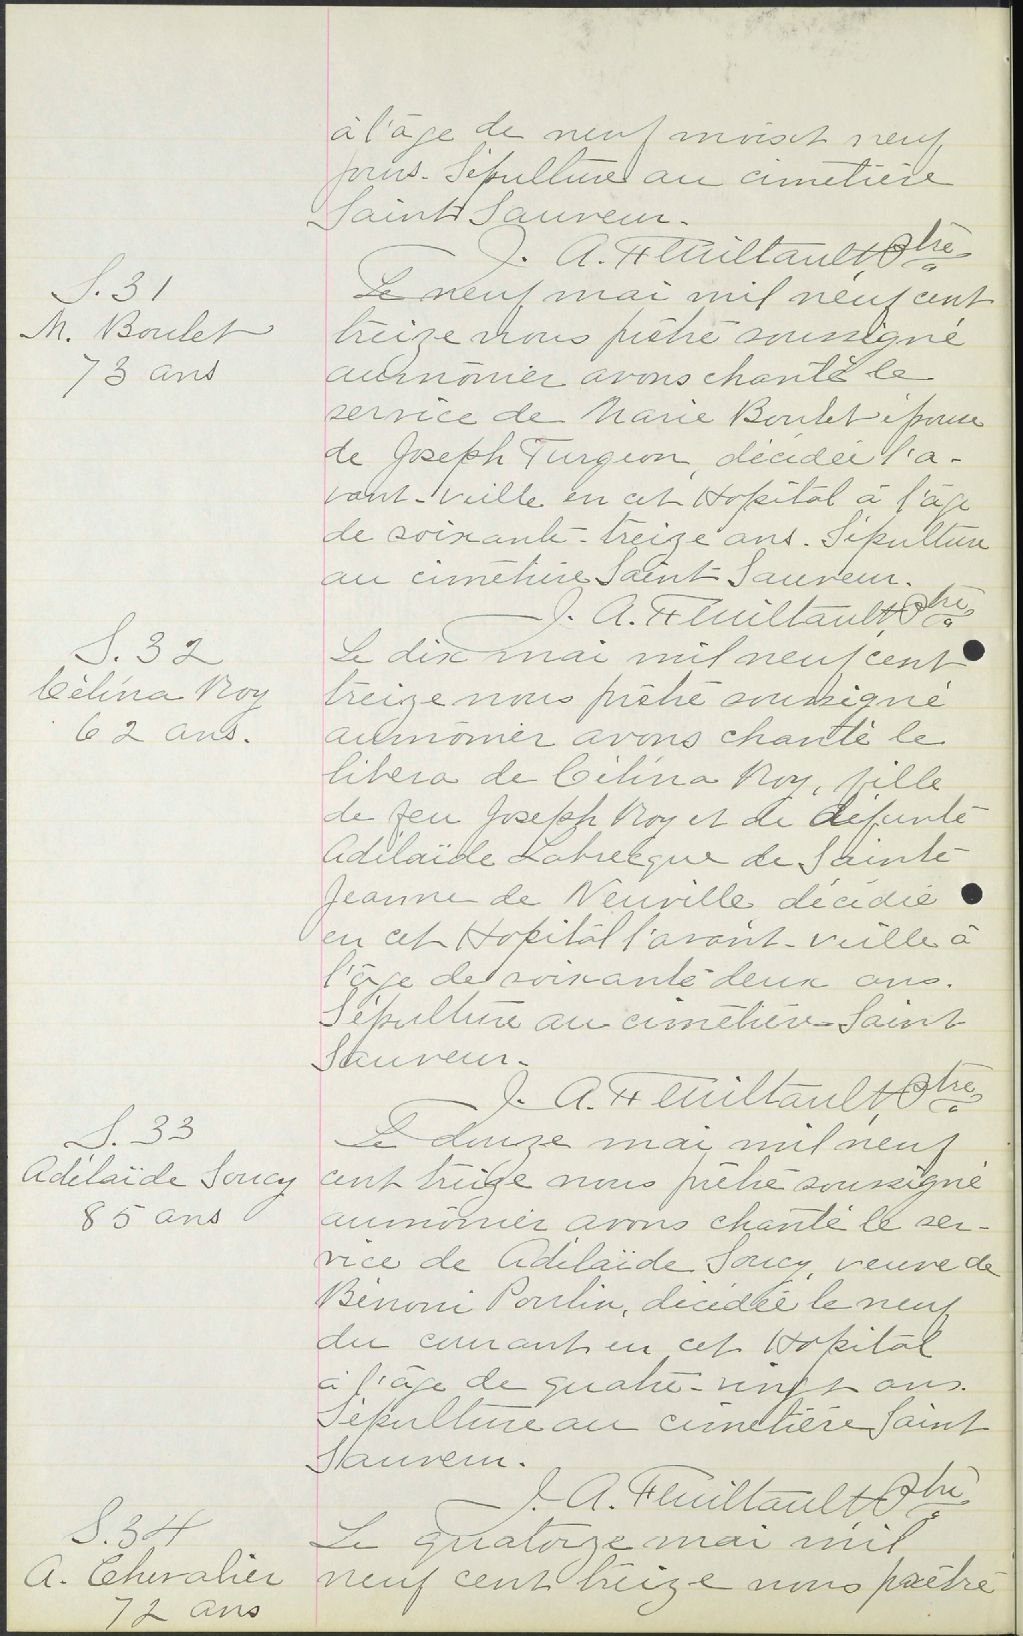 à l'âge de neuf mois et neuf
jours. Sépulture au cimetière
Saint Sauveur.
J. A. Feuiltault Ptre
S. 31
M. Boulet
73 ans
Le neuf mai mil neuf cent
treize nous prêtre soussigné
aumônier avons chanté le
service de Marie Boulet épouse
de Joseph Turgeon, décédée l'a-
vant-veille en cet Hopital à l'âge
de soixante-treize ans. Sépulture
au cimetière Saint Sauveur.
J. A. Feuiltault Ptre
S. 32
Célina Roy
62 ans.
Le dix mai mil neuf cent
treize nous prêtre soussigné
aumônier avons chanté le
libera de Célina Roy, fille
de feu Joseph Roy et de défunte
Adélaïde Labrecque de Sainte
Jeanne de Neuville décédée
en cet Hopital l'avant-veille à
l'âge de soixante deux ans.
Sépulture au cimetière Saint
Sauveur.
J. A. Feuiltault Ptre
S. 33
Adélaïde Soucy
85 ans
Le douze mai mil neuf
cent treize nous prêtre soussigné
aumônier avons chanté le ser-
vice de Adélaïde Soucy, veuve de
Bénoni Poulin, décédée le neuf
du courant en cet Hopital
à l'âge de quatre-vingt ans.
Sépulture au cimetière Saint
Sauveur.
J. A. Feuiltault Ptre
S. 34
A. Chevalier
72 ans
Le quatorze mai mil
neuf cent treize nous prêtre